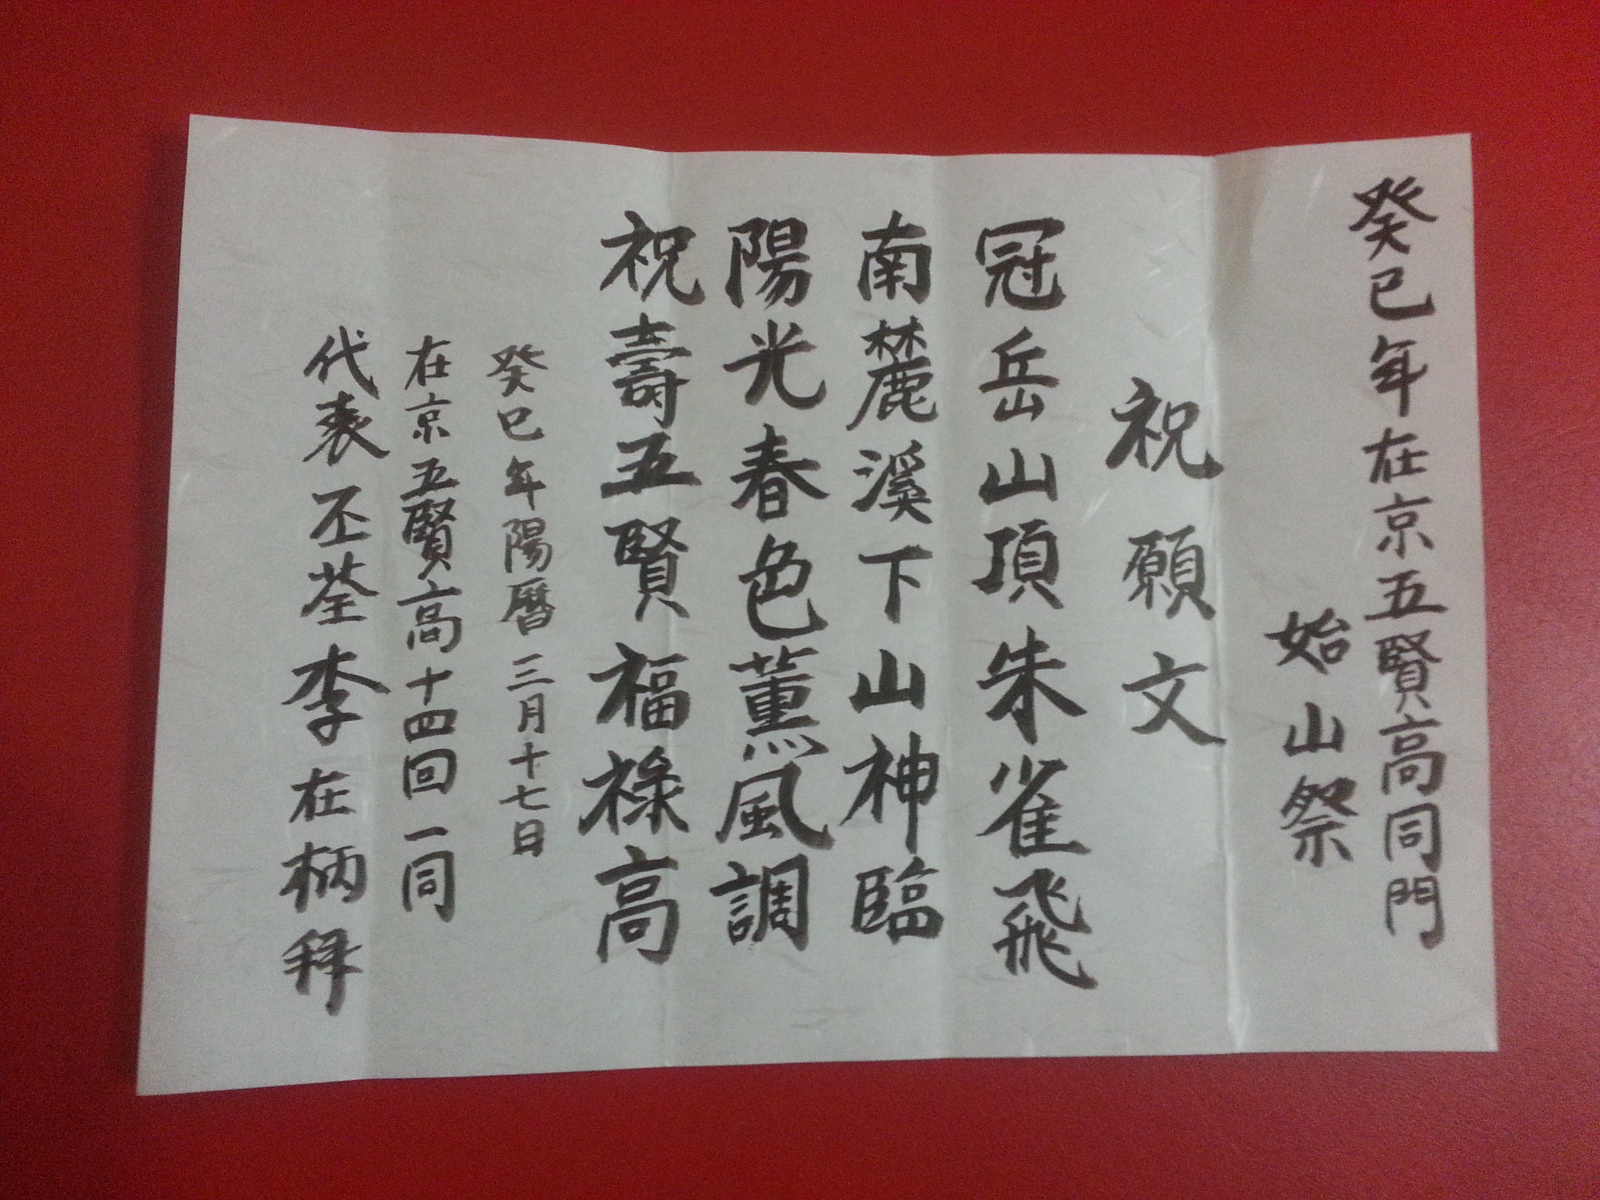 癸巳年在京五賢高同門
始山祭
祝願文
冠岳山頂朱雀飛
南麓溪下山神臨
陽光春色薰風調
祝壽五賢福祿高
癸巳年陽曆三月十七日
在京五賢高十四回一同
代表丕荃李在柄拜